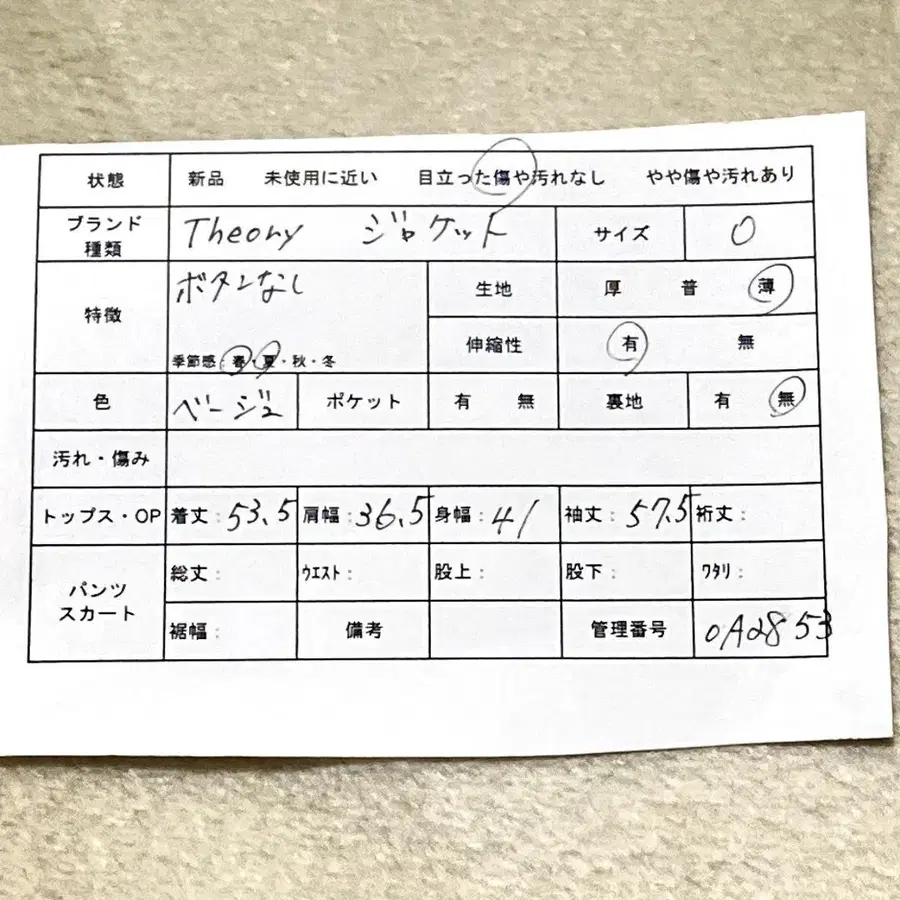 状態 新品 未使用に近い 目立った傷や汚れなし やや傷や汚れあり
ブランド
種類 Theory ジャケット サイズ 0
特徴 ボタンなし 生地 厚 普 薄
季節感・春・夏・秋・冬 伸縮性 有 無
色 ベージュ ポケット 有 無 裏地 有 無
汚れ・傷み
トップス・OP 着丈: 53.5 肩幅: 36.5 身幅: 41 袖丈: 57.5 裄丈:
パンツ
スカート 総丈: ウエスト: 股上: 股下: ワタリ:
裾幅: 備考 管理番号 0A2853